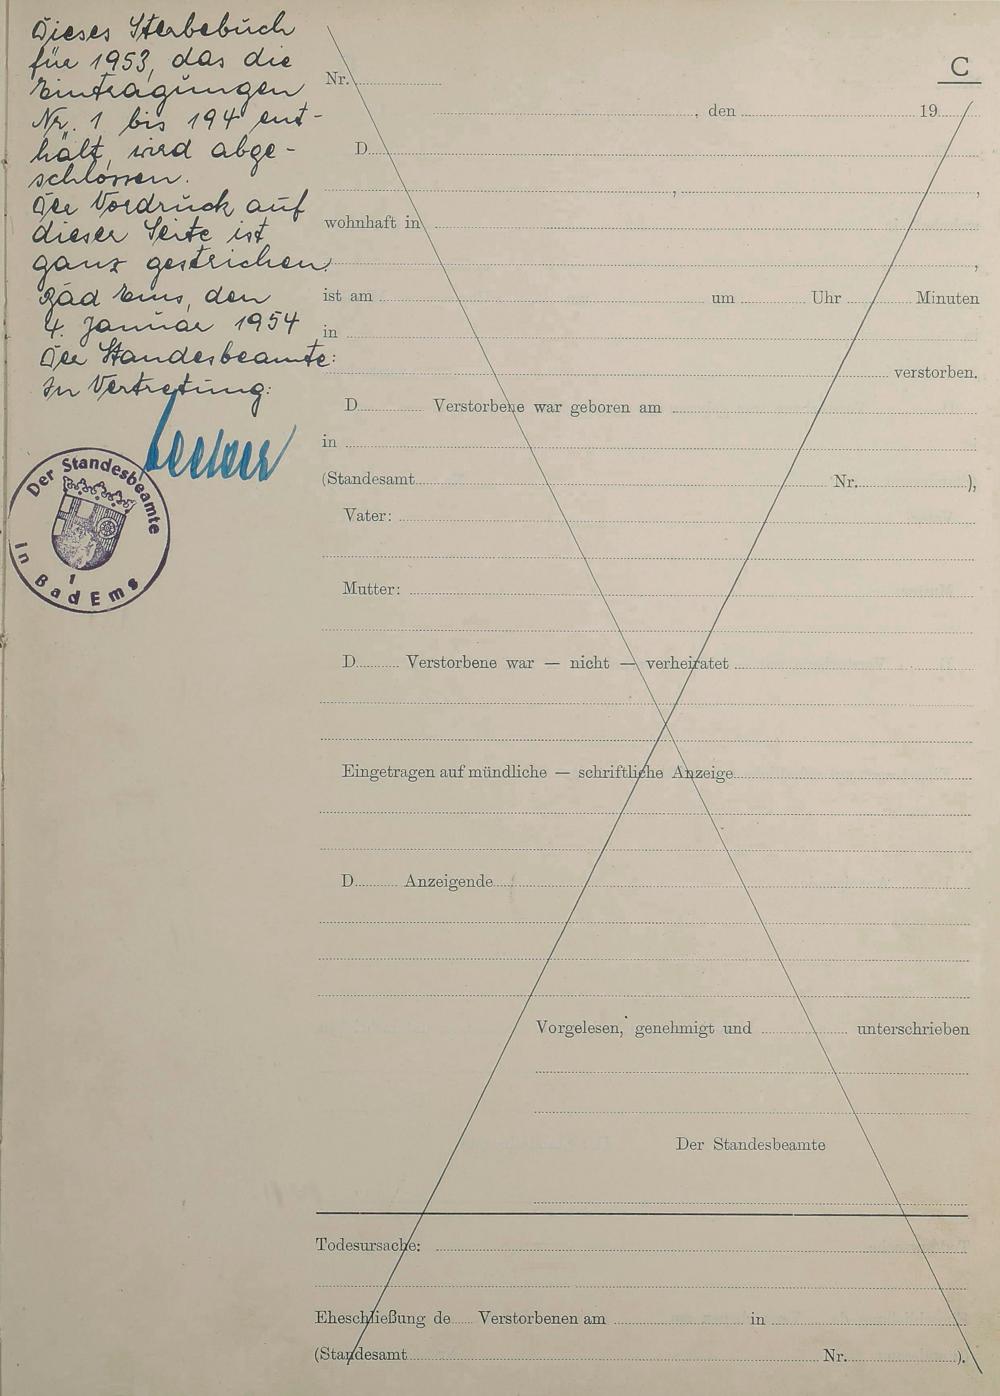 Dieses Sterbebuch
für 1953, das die
Eintragungen
Nr. 1 bis 194 ent-
hält, wird abge-
schlossen.
Der Vordruck auf
dieser Seite ist
ganz gestrichen.
Bad Ems, den
4. Januar 1954
Der Standesbeamte:
In Vertretung:
Der Standesbeamte
in Bad Ems
1
C
Nr.
, den 19
D
, ,
wohnhaft in
,
ist am um Uhr Minuten
in
verstorben.
D Verstorbene war geboren am
in
(Standesamt Nr. ),
Vater:
Mutter:
D Verstorbene war — nicht — verheiratet
Eingetragen auf mündliche — schriftliche Anzeige
D Anzeigende
Vorgelesen, genehmigt und unterschrieben
Der Standesbeamte
Todesursache:
Eheschließung de Verstorbenen am in
(Standesamt Nr. ).